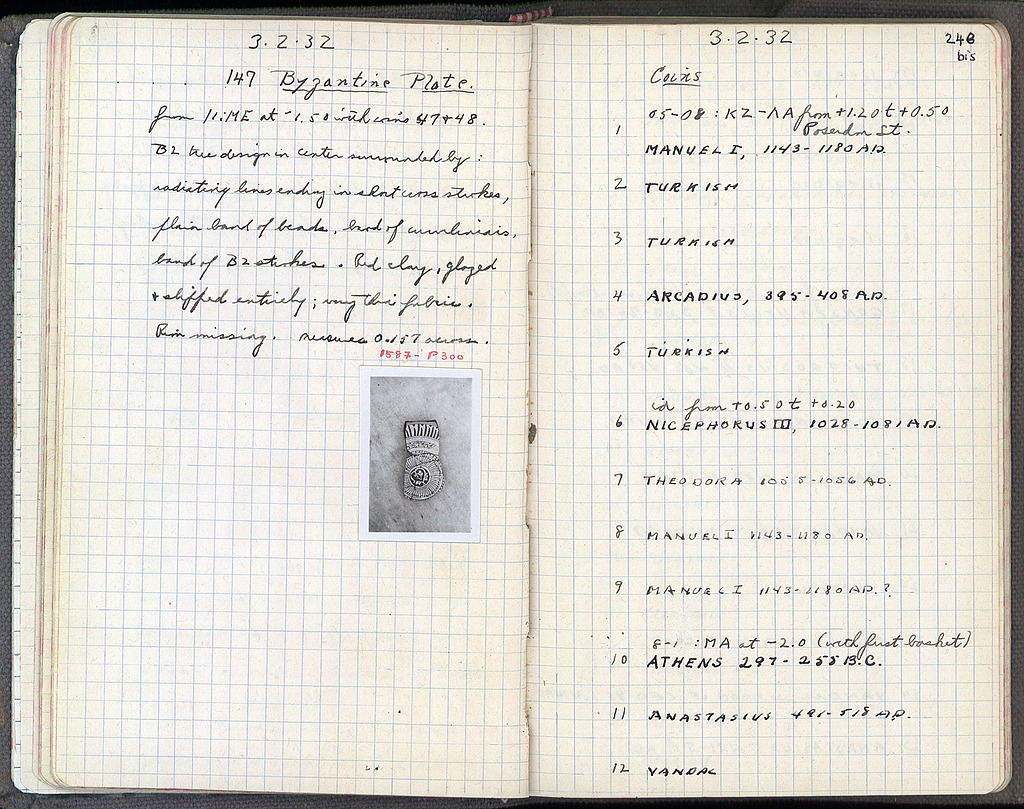 3·2·32
147 Byzantine Plate.
from 11:ME at -1.50 with coins 47+48.
B2 tree design in center surrounded by:
radiating lines ending in short cross strokes,
plain band of beads, band of curvilinears,
band of B2 strokes. Red clay, glazed
+ slipped entirely; very thin fabric.
Rim missing. 0.157 across.
1587- P300
3·2·32
246
bis
Coins
05-08: KZ-ΛA from +1.20 t +0.50
Poseidon St.
1 MANUEL I, 1143-1180 A.D.
2 TURKISH
3 TURKISH
4 ARCADIUS, 395-408 A.D.
5 TURKISH
id from +0.50 t +0.20
6 NICEPHORUS III, 1028-1081 A.D.
7 THEODORA 1055-1056 A.D.
8 MANUEL I 1143-1180 A.D.
9 MANUEL I 1143-1180 A.D.?
8-1 :MA at -2.0 (with first basket)
10 ATHENS 297-255 B.C.
11 ANASTASIUS 491-518 A.D.
12 VANDAL